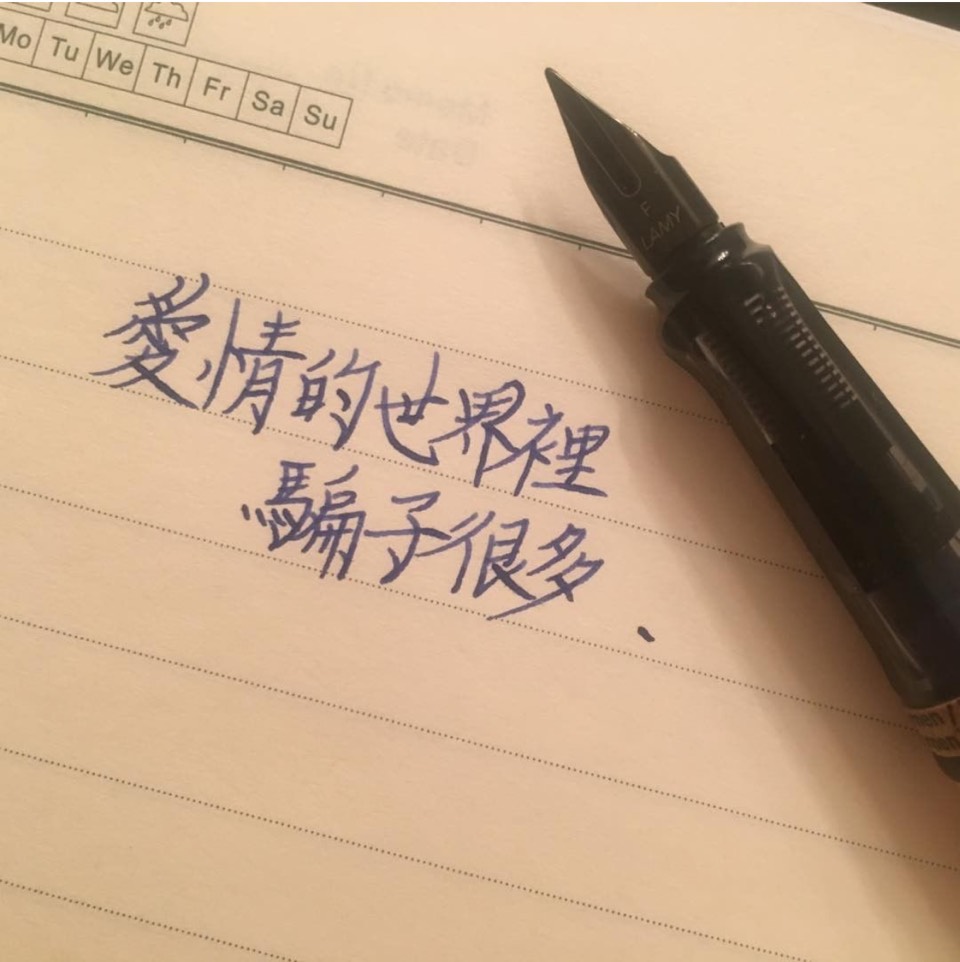 Mo Tu We Th Fr Sa Su
F
LAMY
愛情的世界裡
騙子很多.